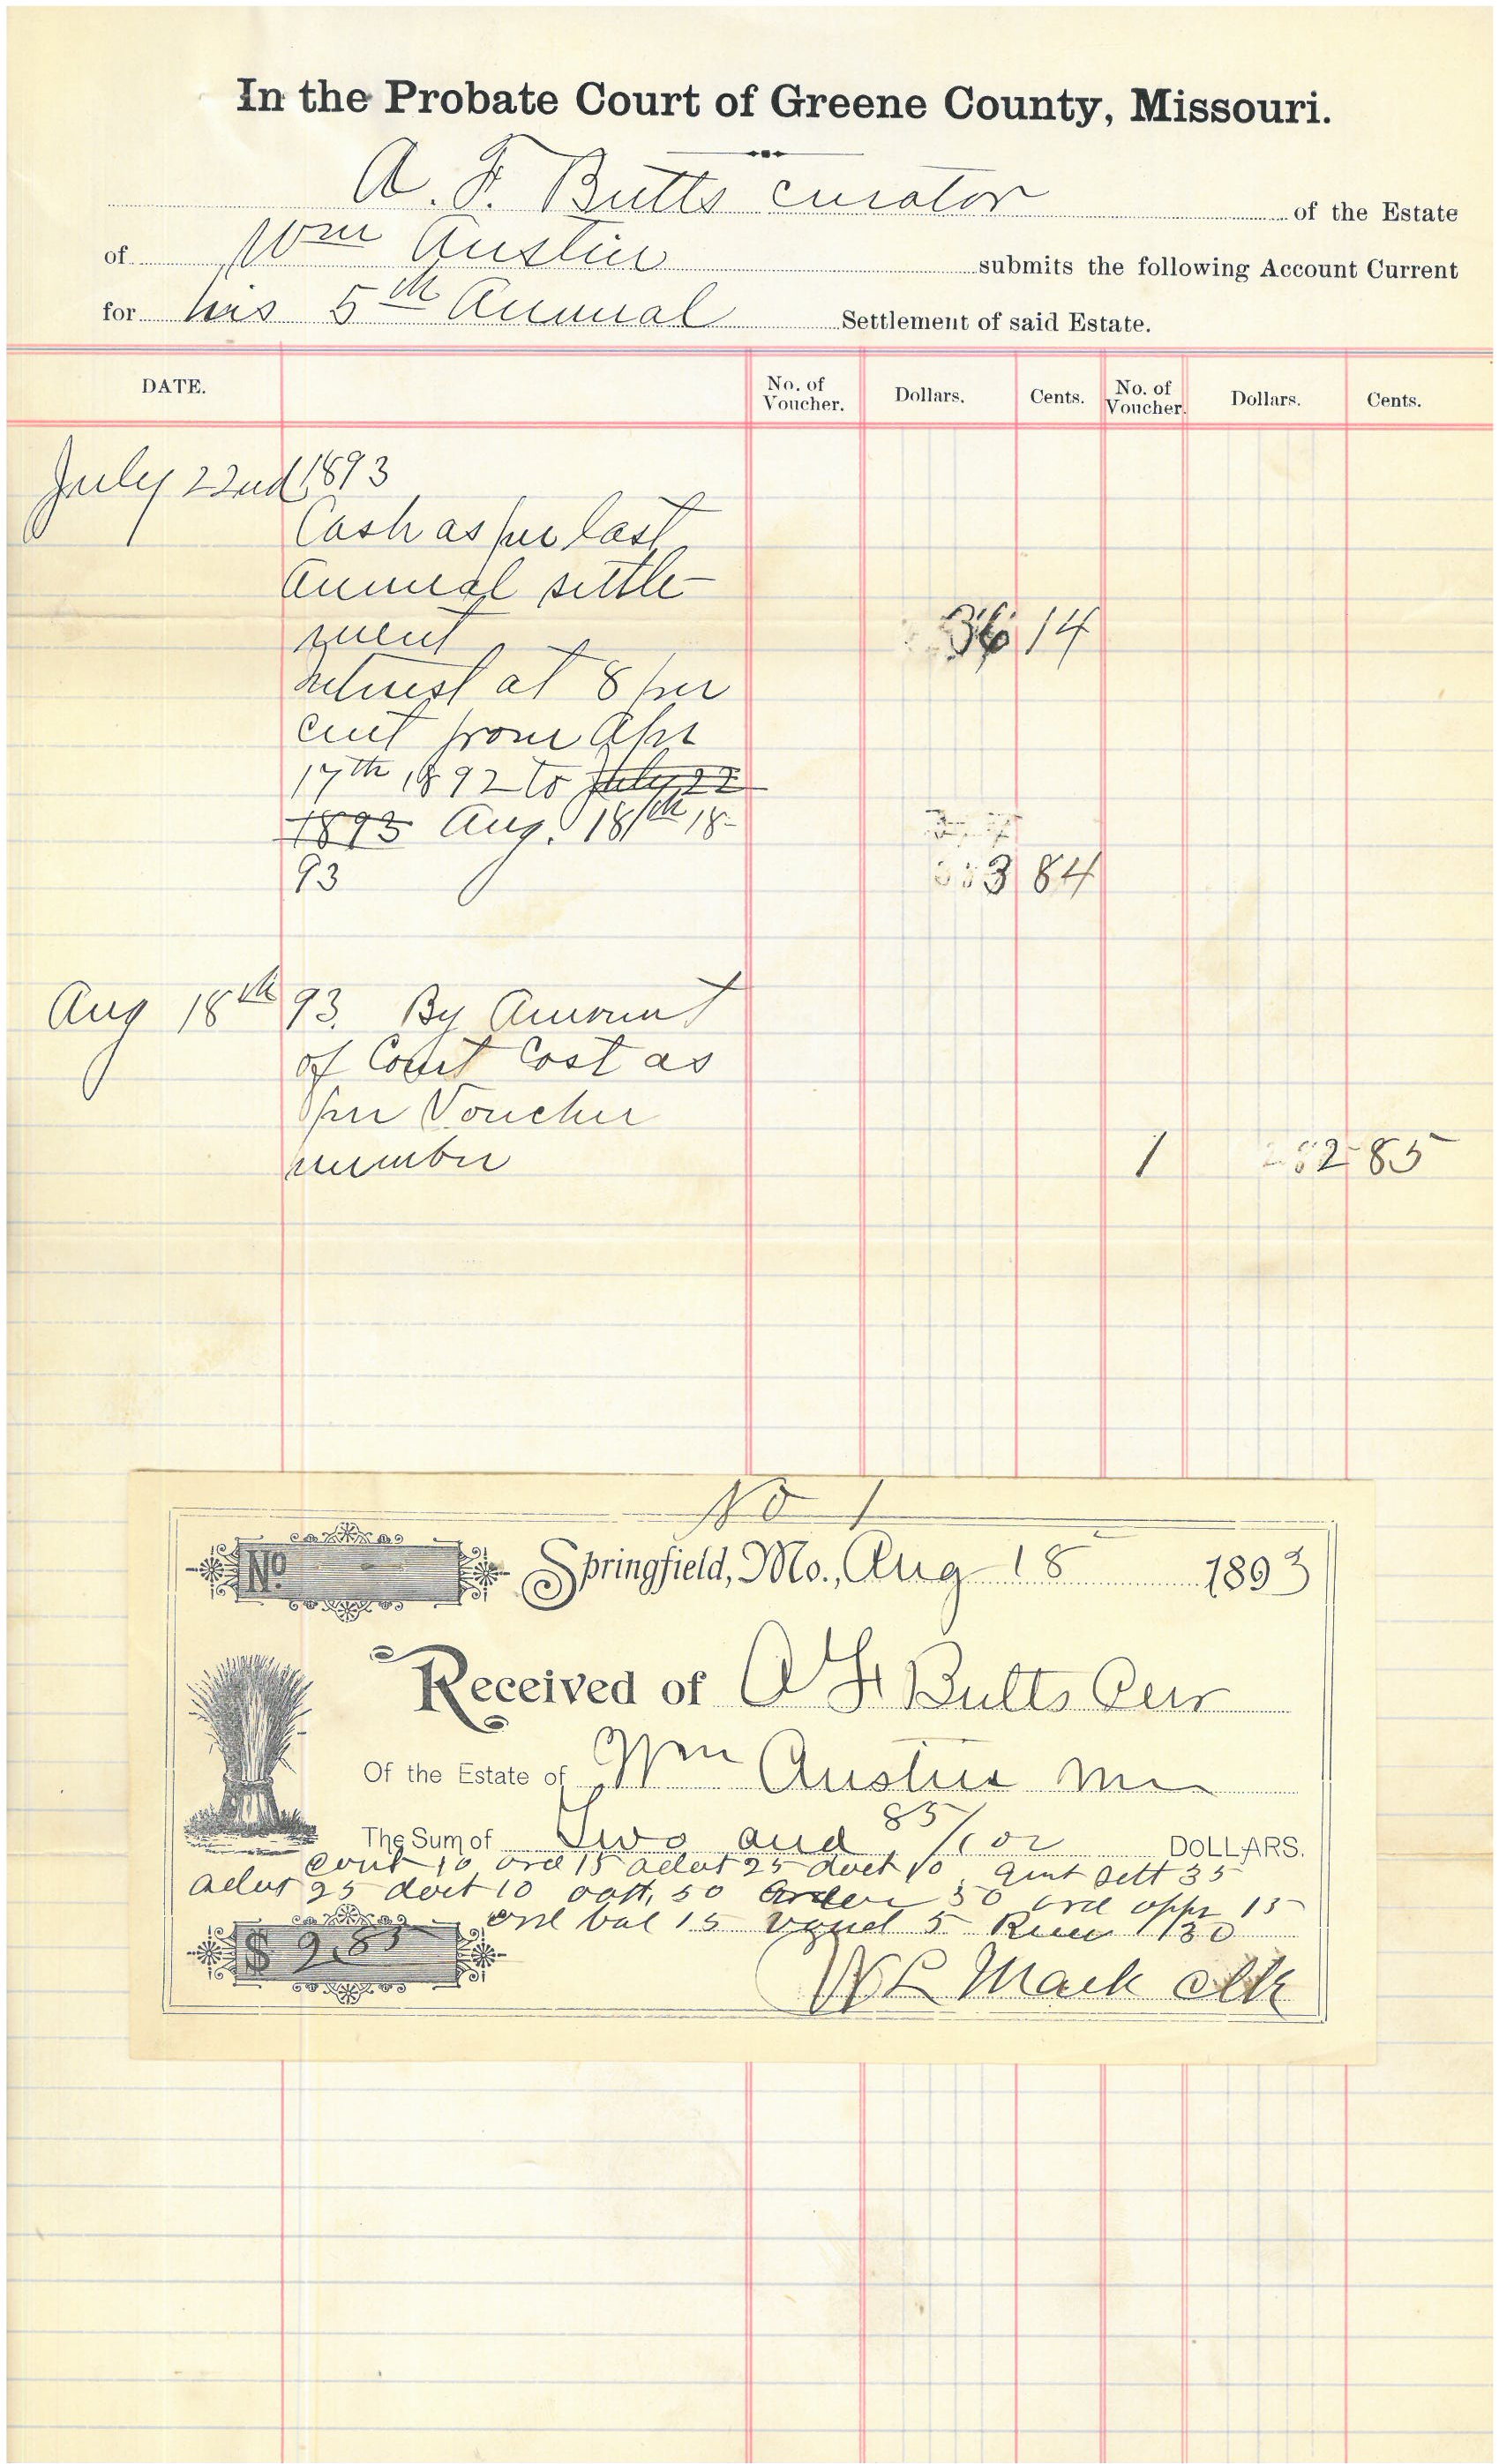 In the Probate Court of Greene County, Missouri.
A. F. Butts curator of the Estate
of Wm Austin submits the following Account Current
for his 5th Annual Settlement of said Estate.
DATE. No. of Voucher. Dollars. Cents. No. of Voucher. Dollars. Cents.
July 22nd 1893
Cash as per last
Annual settle-
ment 36 14
Interest at 8 per
cent from Apr
17th 1892 to July 22
1893 Aug. 18th 18-
93 3 84
Aug 18th 93. By Amount
of Court Cost as
per Voucher
number 1 2 85
No 1
No. Springfield, Mo., Aug 18 1893
Received of A F Butts Cur
Of the Estate of Wm Austin
The Sum of Two and 85/100 DOLLARS.
cont 10 ord 15 advt 25 doct 10 sett 35
advt 25 doct 10 50 order 50 ord appr 15
ord bal 15 5 1/30
$ 2.85
W L Mack clk